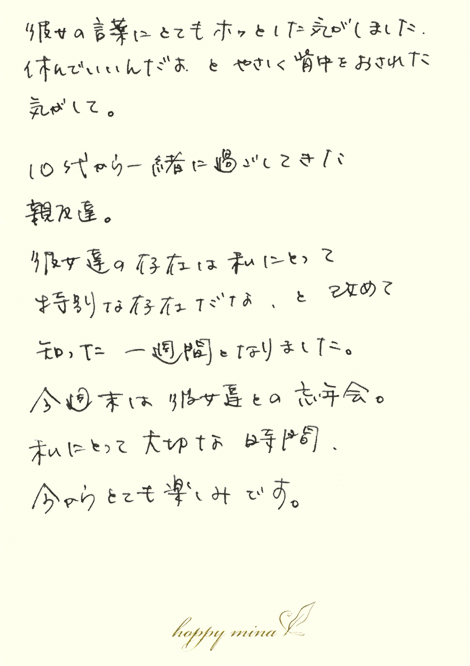 彼女の言葉にとてもホッとした気がしました.
休んでいいんだよ と やさしく背中をおされた
気がして。
10代から一緒に過ごしてきた
親友達。
彼女達の存在は私にとって
特別な存在だな、と 改めて
知った 一週間となりました。
今週末は 彼女達との 忘年会。
私にとって 大切な 時間、
今からとても楽しみです。
happy mina